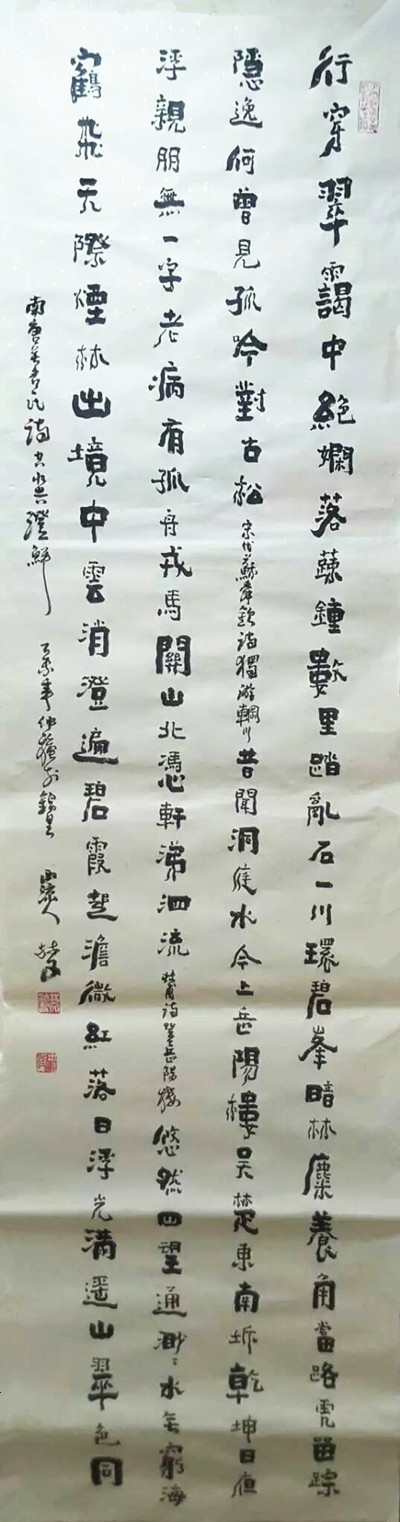 行穿翠靄中絕澗落踈鐘數里踏亂石一川環碧峯暗林麋養角當路虎留蹤
隱逸何曾見孤吟對古松宋代蘇舜欽詩獨游輞川昔聞洞庭水今上岳陽樓吳楚東南坼乾坤日夜
浮親朋無一字老病有孤舟戎馬關山北憑軒涕泗流杜甫詩登岳陽樓悠然四望通渺渺水無窮海
鶴飛天際煙林出境中雲消澄遍碧霞起澹微紅落日浮光滿遥山翠色同
南唐 詩 澄鮮